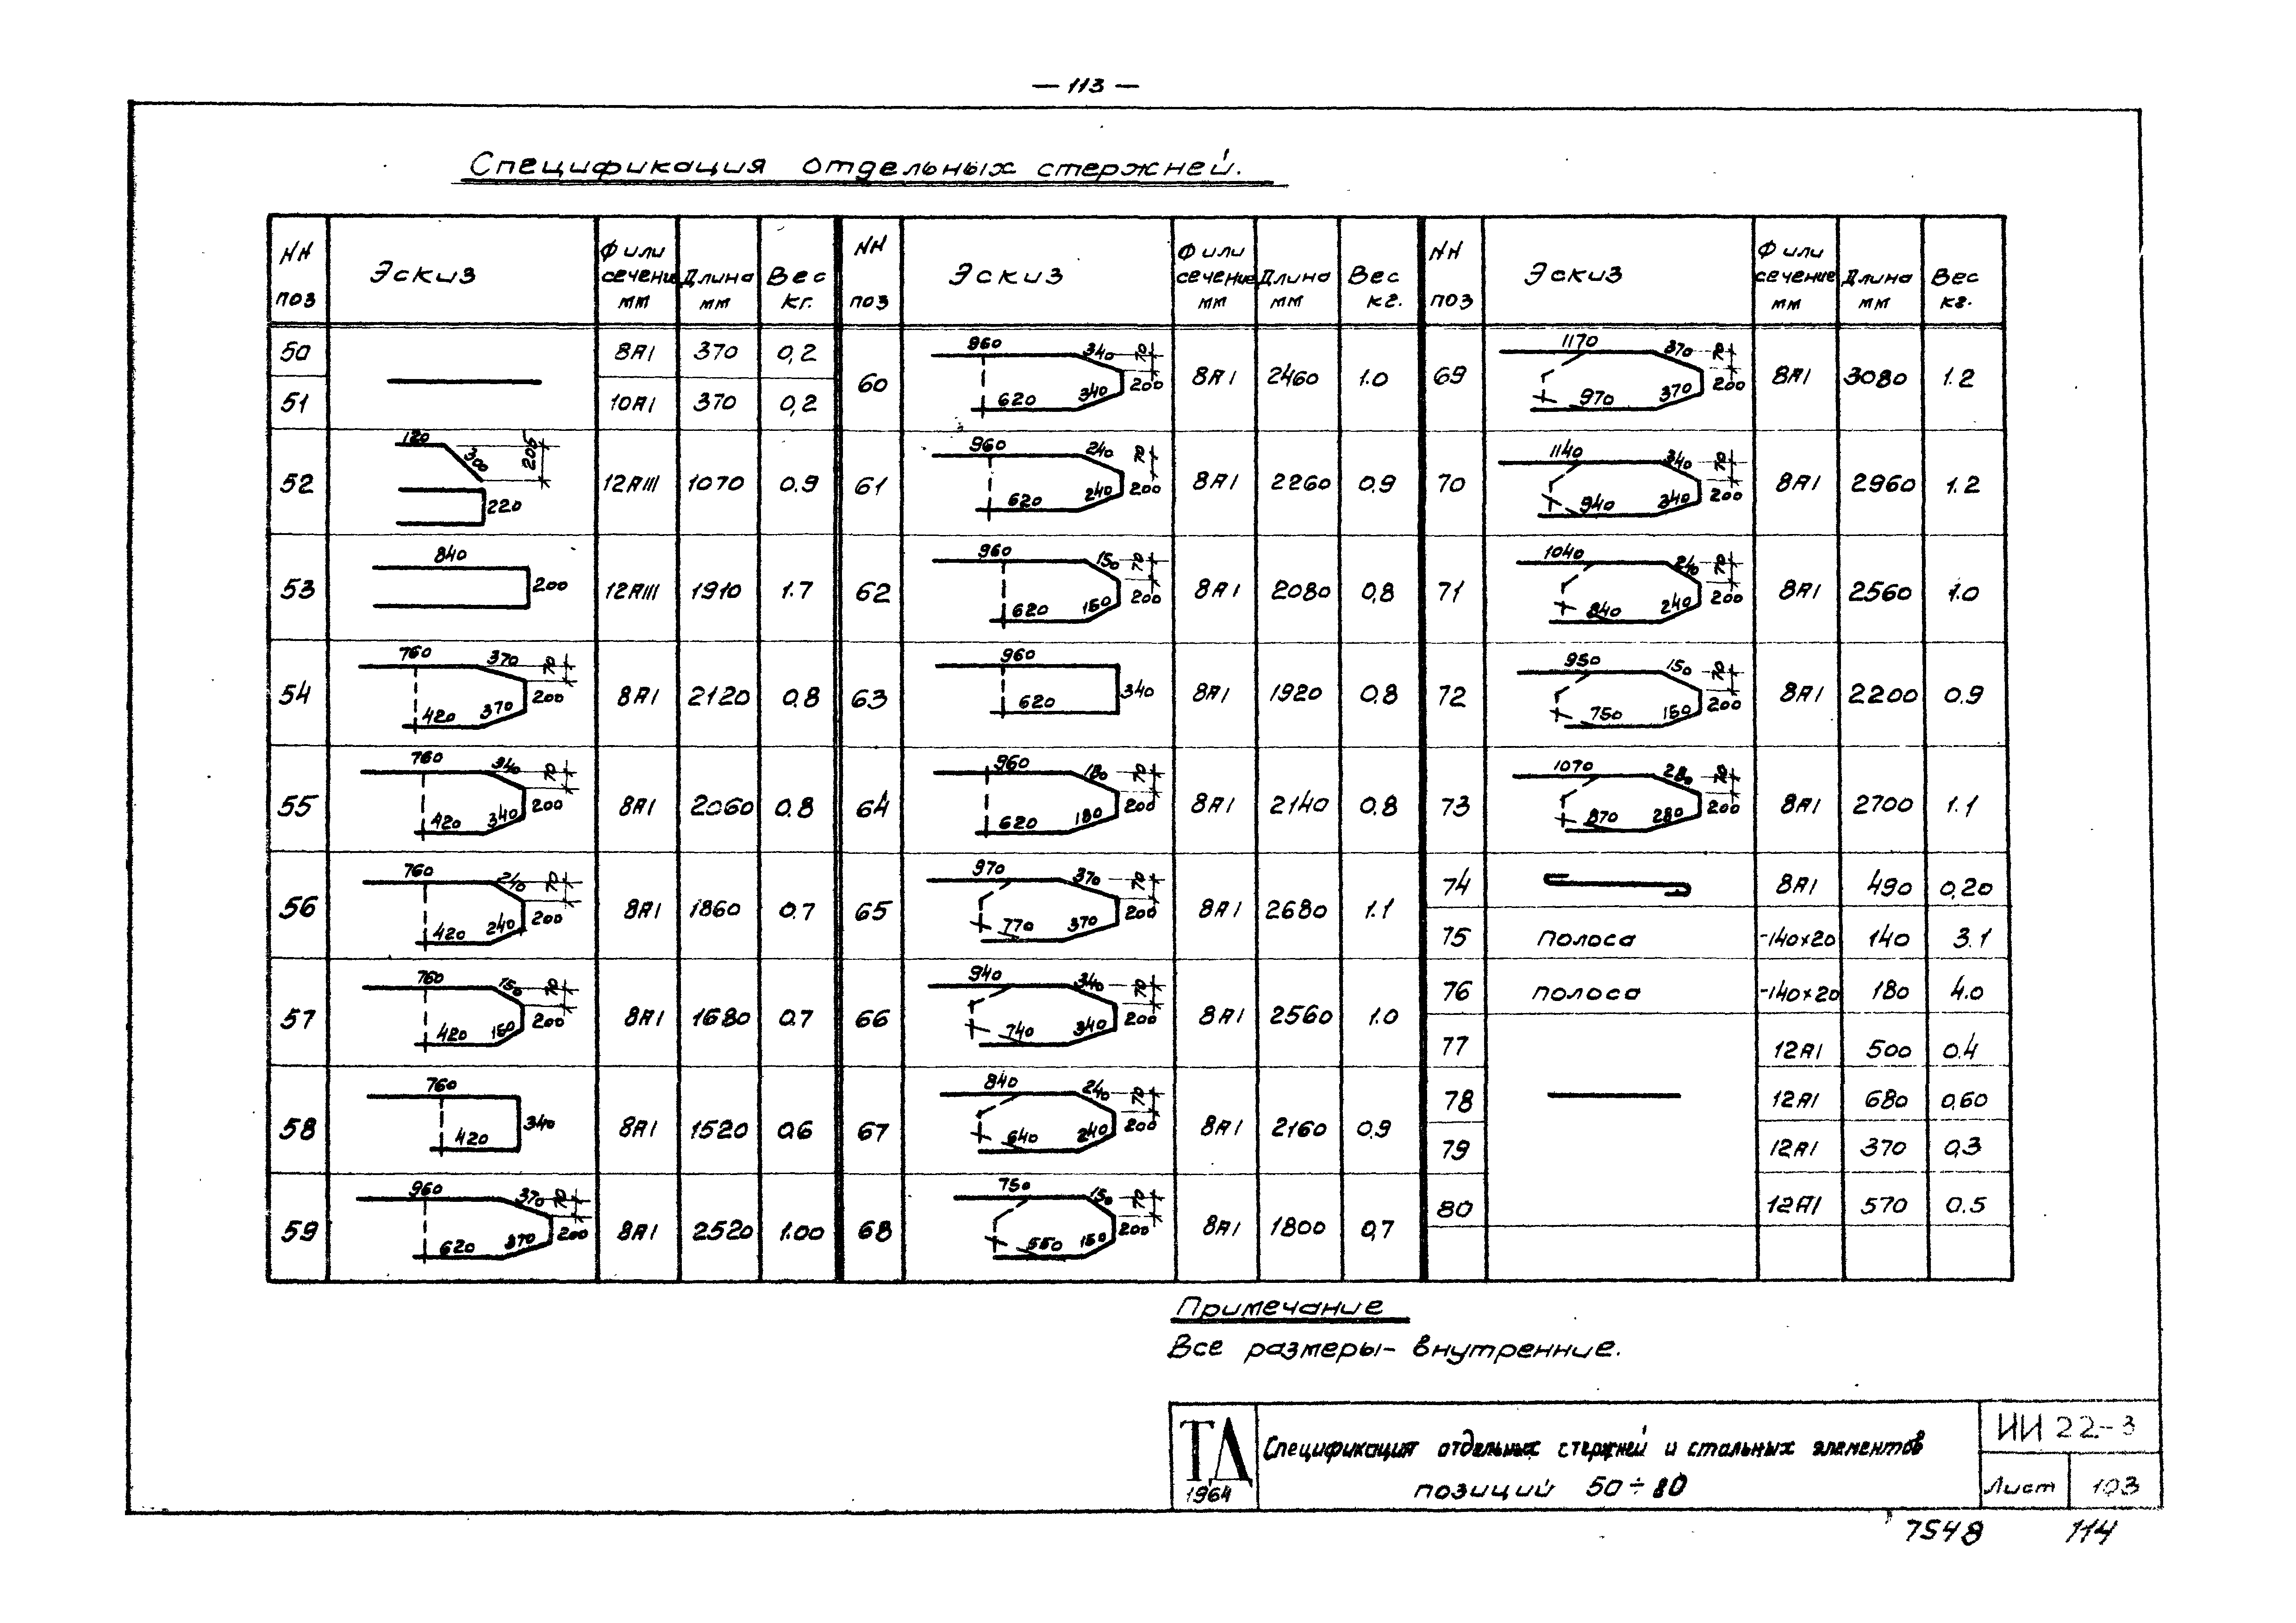 — 113 —
Спецификация отдельных стержней.
NN поз | Эскиз | Ф или сечение мм | Длина мм | Вес кг.
50 | 8АI | 370 | 0,2
51 | 10АI | 370 | 0,2
52 | 120 300 205 220 | 12АIII | 1070 | 0.9
53 | 840 200 | 12АIII | 1910 | 1.7
54 | 760 370 70 200 370 420 | 8АI | 2120 | 0.8
55 | 760 340 70 200 340 420 | 8АI | 2060 | 0.8
56 | 760 240 70 200 240 420 | 8АI | 1860 | 0.7
57 | 760 150 70 200 150 420 | 8АI | 1680 | 0.7
58 | 760 340 420 | 8АI | 1520 | 0.6
59 | 960 370 70 200 370 620 | 8АI | 2520 | 1.00
NN поз | Эскиз | Ф или сечение мм | Длина мм | Вес кг.
60 | 960 340 70 200 340 620 | 8АI | 2460 | 1.0
61 | 960 240 70 200 240 620 | 8АI | 2260 | 0.9
62 | 960 150 70 200 150 620 | 8АI | 2080 | 0,8
63 | 960 340 620 | 8АI | 1920 | 0.8
64 | 960 180 70 200 180 620 | 8АI | 2140 | 0.8
65 | 970 370 70 200 370 770 | 8АI | 2680 | 1.1
66 | 940 340 70 200 340 740 | 8АI | 2560 | 1.0
67 | 840 240 70 200 240 640 | 8АI | 2160 | 0.9
68 | 750 150 70 200 150 550 | 8АI | 1800 | 0,7
NN поз | Эскиз | Ф или сечение мм | Длина мм | Вес кг.
69 | 1170 370 70 200 370 970 | 8АI | 3080 | 1.2
70 | 1140 340 70 200 340 940 | 8АI | 2960 | 1.2
71 | 1040 240 70 200 240 840 | 8АI | 2560 | 1.0
72 | 950 150 70 200 150 750 | 8АI | 2200 | 0.9
73 | 1070 280 70 200 280 870 | 8АI | 2700 | 1.1
74 | 8АI | 490 | 0,20
75 | полоса | -140×20 | 140 | 3.1
76 | полоса | -140×20 | 180 | 4.0
77 | 12АI | 500 | 0.4
78 | 12АI | 680 | 0.60
79 | 12АI | 370 | 0.3
80 | 12АI | 570 | 0.5
Примечание
Все размеры - внутренние.
ТД
1964
Спецификация отдельных стержней и стальных элементов
позиций 50÷80
ИИ 22-3
Лист 103
7548 114